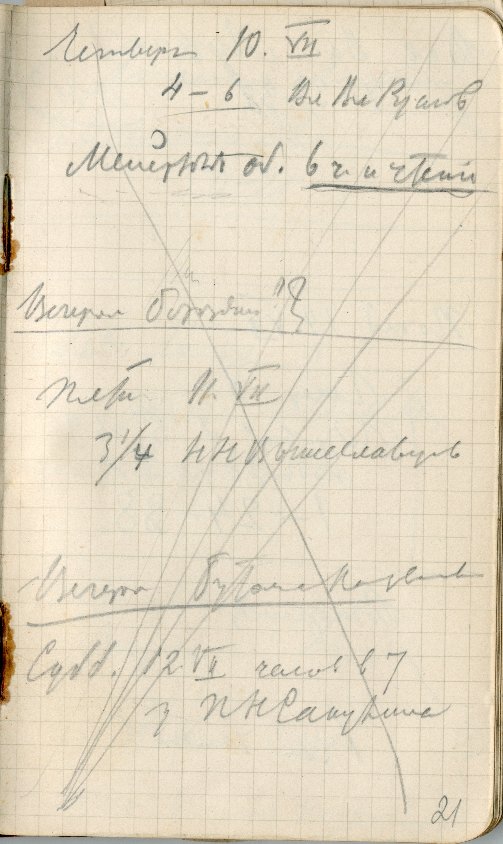 Четверг 10. VII
4 – 6 Вл Вл Русов
об. 6 ч. и чтение
Вечером
Пятн. 11. VII
3 1/4 Н Н Вышеславцев
Вечером
Субб. 12 VII часов в 7
у П Н Сакулина
21